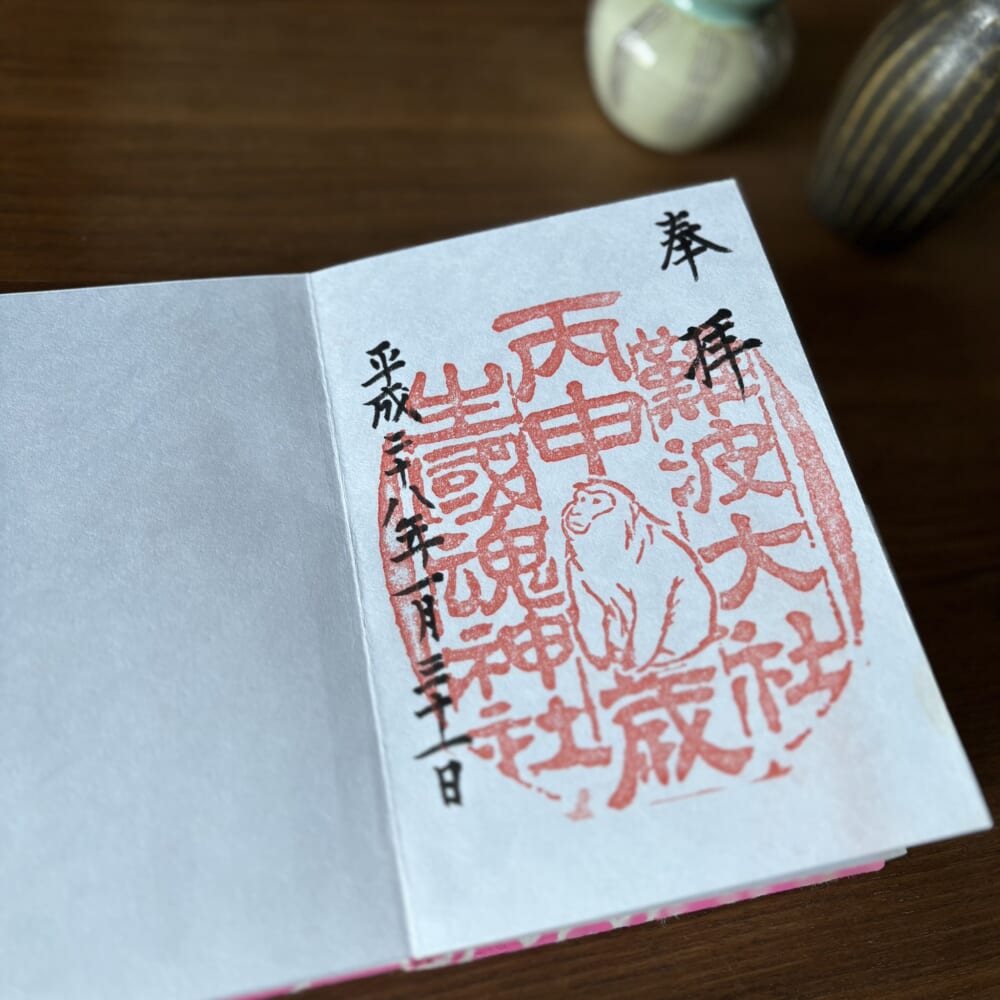 奉拝
難波大社
丙申歳
生國魂神社
平成二十八年一月三十一日